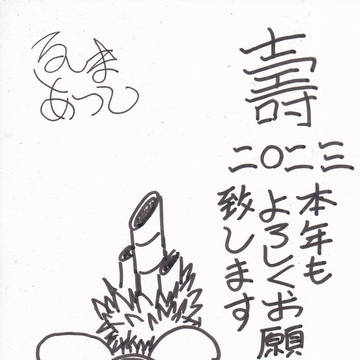 壽
二〇二三
本年も
よろしくお願
致します
るしま
あつし